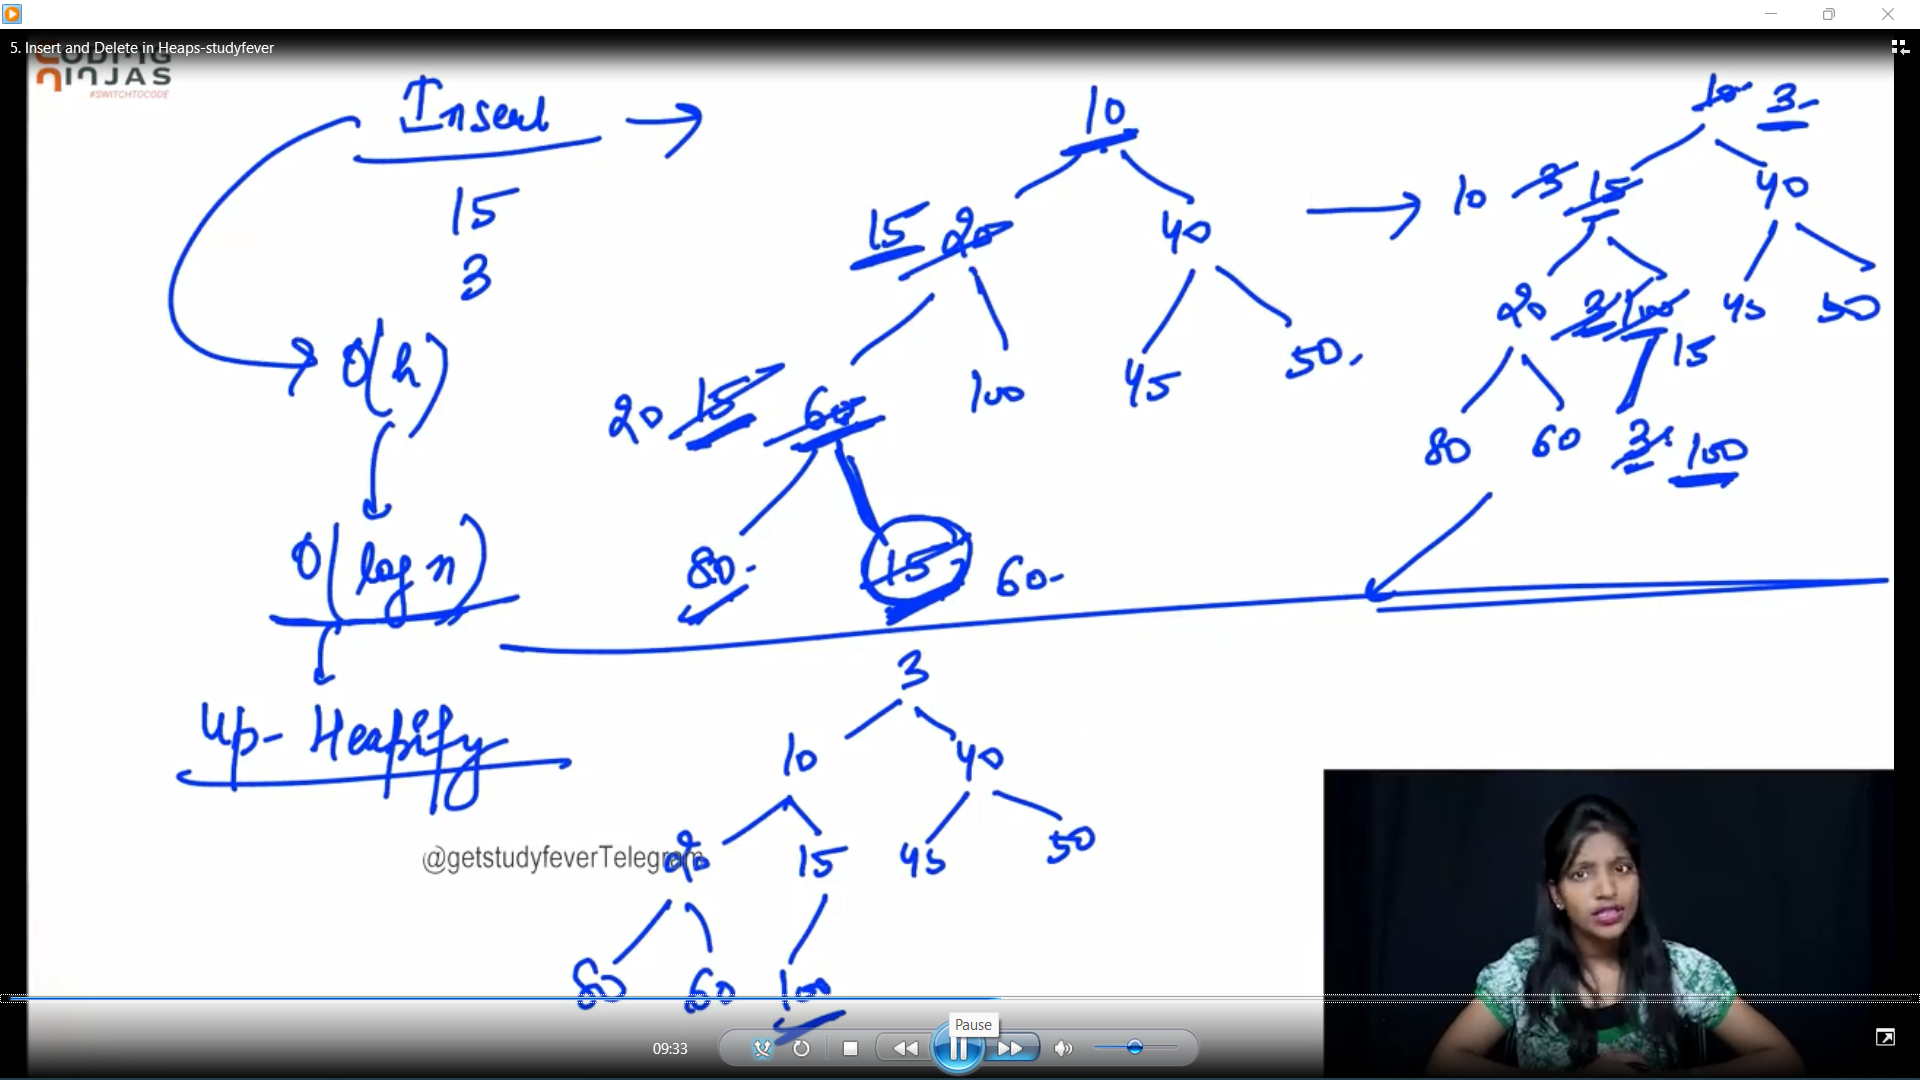 5. Insert and Delete in Heaps-studyfever
CODING
NINJAS
#SWITCHTOCODE
Insert
15
3
O(h)
O(log n)
Up-Heapify
10
15 20 40
20 15 60 100 45 50
80 15 60
10 3
10 3 15 40
20 3 100 15 45 50
80 60 3 100
3
10 40
20 15 45 50
80 60 100
@getstudyfeverTelegram
Pause
09:33